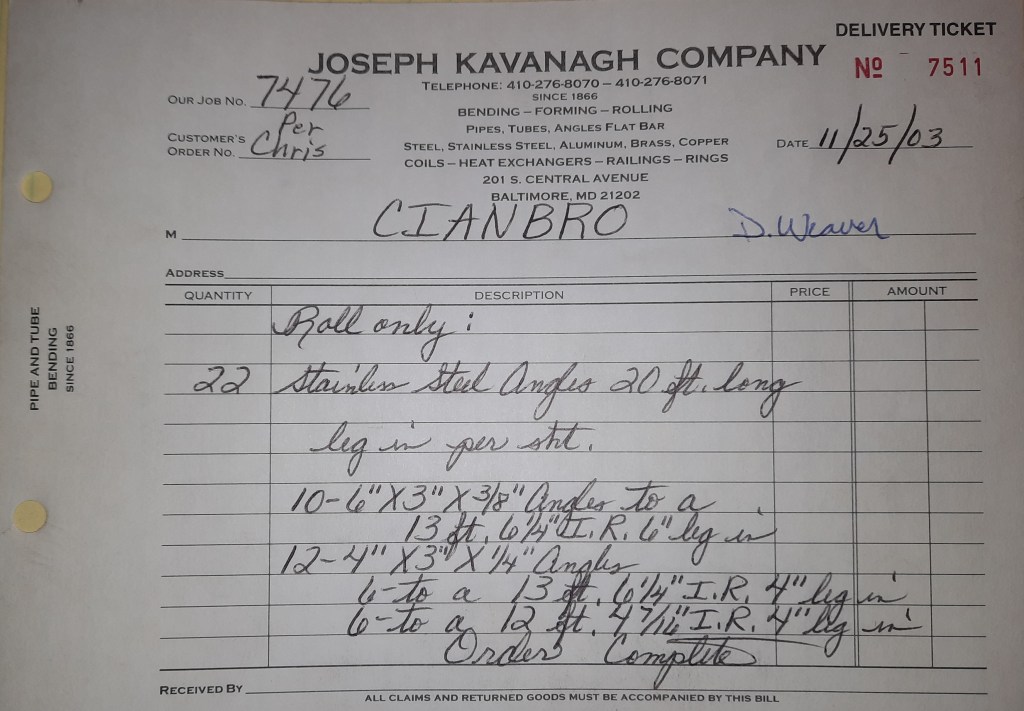 DELIVERY TICKET
JOSEPH KAVANAGH COMPANY
Nº 7511
TELEPHONE: 410-276-8070 – 410-276-8071
SINCE 1866
OUR JOB NO. 7476
BENDING – FORMING – ROLLING
PIPES, TUBES, ANGLES FLAT BAR
CUSTOMER'S ORDER NO. Per Chris
STEEL, STAINLESS STEEL, ALUMINUM, BRASS, COPPER
DATE 11/25/03
COILS – HEAT EXCHANGERS – RAILINGS – RINGS
201 S. CENTRAL AVENUE
BALTIMORE, MD 21202
M CIANBRO D. Weaver
ADDRESS
QUANTITY DESCRIPTION PRICE AMOUNT
Roll only:
22 Stainless Steel Angles 20 ft. long
leg in per sht.
10-6" X 3" X 3/8" Angles to a
13 ft. 6 1/4" I.R. 6" leg in
12-4" X 3" X 1/4" Angles
6-to a 13 ft. 6 1/4" I.R. 4" leg in
6-to a 12 ft. 4 7/16" I.R. 4" leg in
Order Complete
RECEIVED BY
ALL CLAIMS AND RETURNED GOODS MUST BE ACCOMPANIED BY THIS BILL
PIPE AND TUBE
BENDING
SINCE 1866